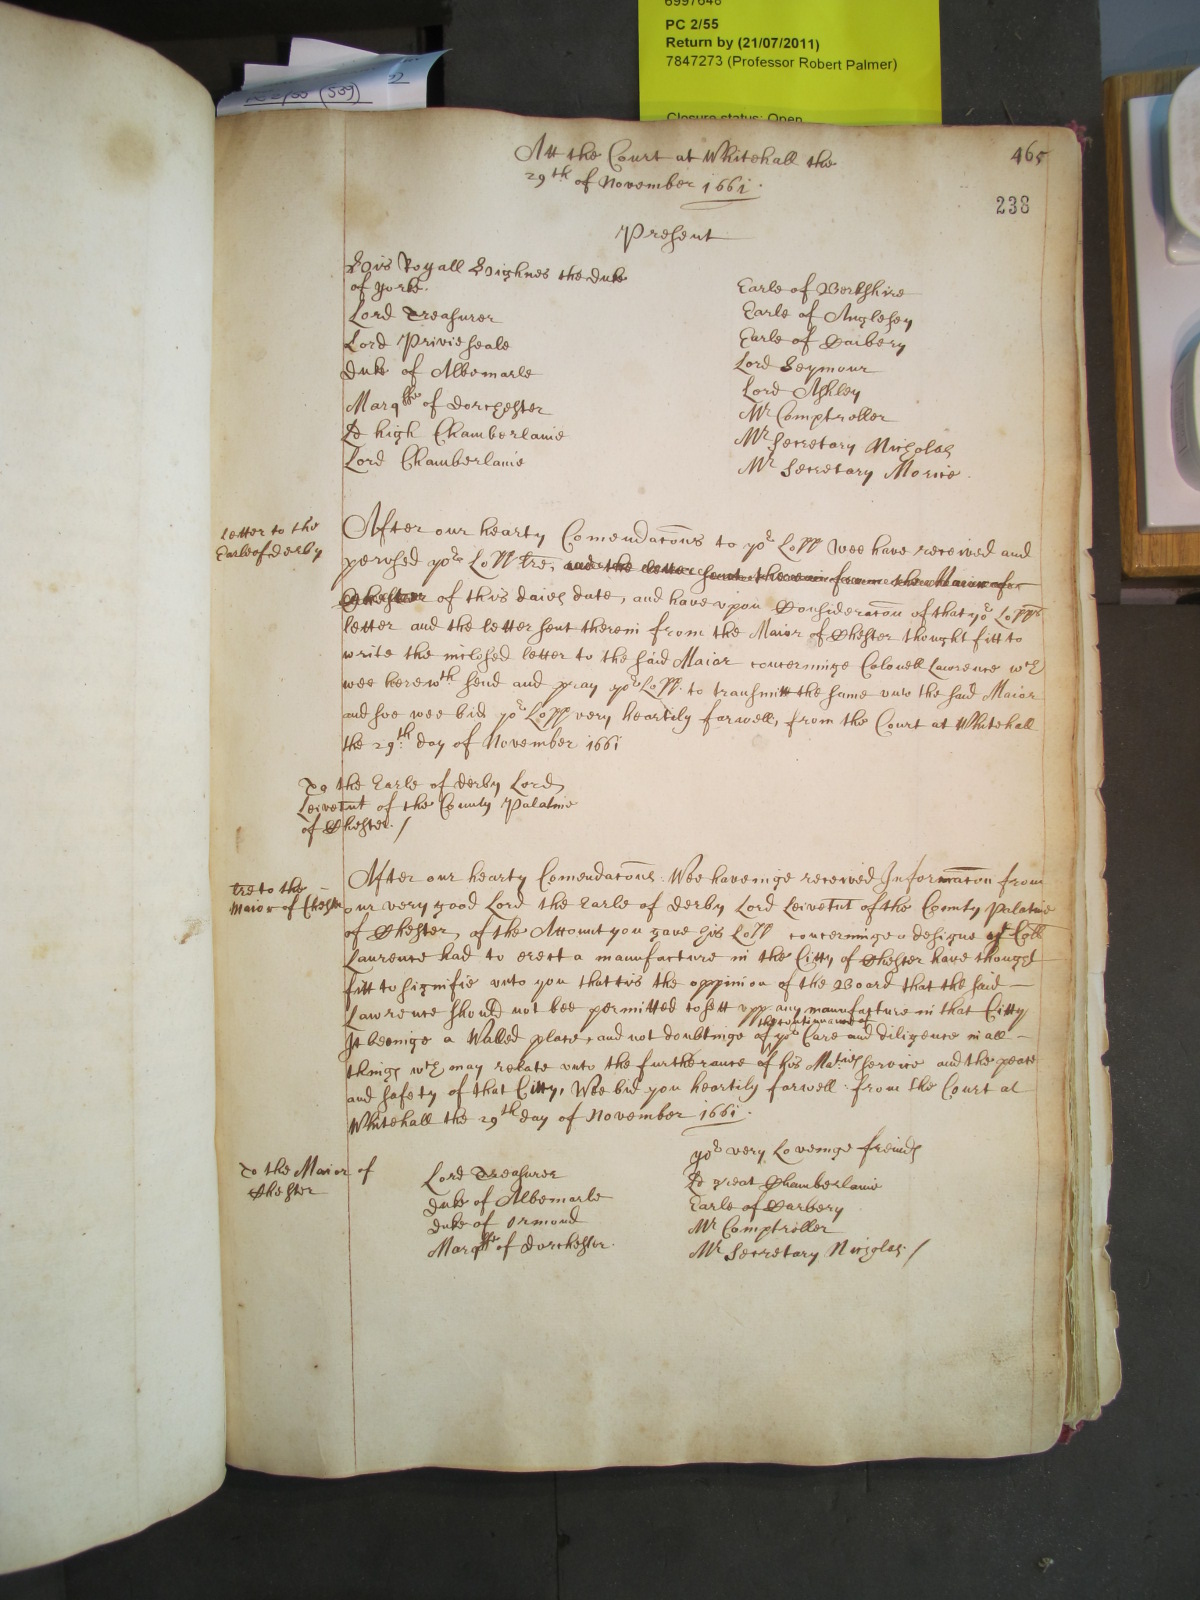 6997646
PC 2/55
Return by (21/07/2011)
7847273 (Professor Robert Palmer)
Closure status: Open
(539)
465
238
Att the Court at Whitehall the
29th of November 1661.
Present
His Royall Highnes the Duke
of Yorke.
Lord Treasurer
Lord Privie Seale
Duke of Albemarle
Marqsse of Dorchester
Ld high Chamberlaine
Lord Chamberlaine
Earle of Berkshire
Earle of Anglesey
Earle of Carbery
Lord Seymour
Lord Ashley
Mr Comptroller
Mr Secretary Nicholas
Mr Secretary Morice
Letter to the
Earle of Derby
After our hearty Comendacons to yor Lopp Wee have received and
perused yor Lopp tre, and the letter sent therein from the Maior of
Chester of this daies date, and have upon Consideracon of that yor Lopps
letter and the letter sent therein from the Maior of Chester thought fitt to
write the inclosed letter to the said Maior concerninge Colonell Lawrence wch
wee herewth send and pray yor Lopp. to transmitt the same unto the said Maior
and soe wee bid yor Lopp very heartily farwell, from the Court at Whitehall
the 29th day of November 1661
To the Earle of Derby Lord
Leivetnt of the County Palatine
of Chester. /
tre to the
Maior of Chester
After our hearty Comendacons. Wee haveinge received Informacon from
our very good Lord the Earle of Derby Lord Leivetnt of the County Palatine
of Chester, of the Account you gave his Lopp concerninge a designe of Coll
Laurence had to erect a manufacture in the Citty of Chester have thought
fitt to signifie unto you that tis the oppinion of the Board that the said
Lawrence should not bee permitted to sett upp any manufacture in that Citty
It beeinge a Walled place, and not doubtinge of yor Care and diligence in all
the continuance of
things wch may relate unto the furtherance of his Maties service and the peace
and safety of that Citty, Wee bid you heartily farwell. from the Court at
Whitehall the 29th day of November 1661.
yor very Loveinge freinds
To the Maior of
Chester
Lord Treasurer
Duke of Albemarle
Duke of Ormond
Marqsse of Dorchester.
Ld great Chamberlaine
Earle of Carbery
Mr Comptroller
Mr Secretary Nicholas. /